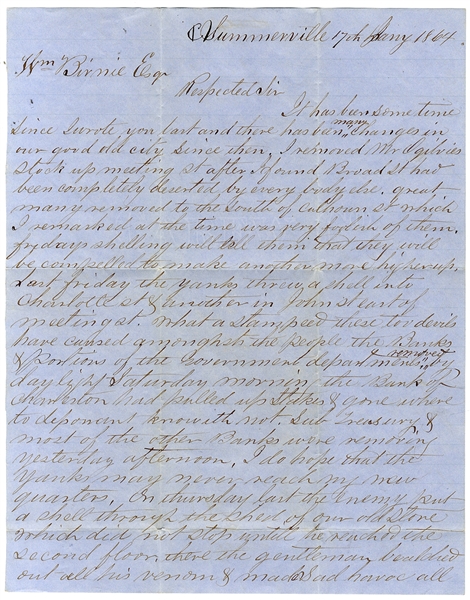 Summerville 17th Jany 1864
Wm Birnie Esqr
Respected Sir
It has been some time
since I wrote you last and there has been many changes in
our good old city since then, I removed Mr Ogilvies
stock up meeting st after I found Broad st had
been completely deserted by every body else. great
many removed to the South of Calhoun st which
I remarked at the time was very foolish of them.
fridays shelling will tell them that they will
be compelled to make another move higher up.
Last friday the yanks threw a shell into
Charlotte st & another in John st east of
meeting st. What a stampeed these two devils
have caused amonghst the people the Banks
& portions of the Government departments removed by
daylight Saturday mornin the Bank of
Charleston had pulled up Stakes & gone where
to deponant knoweth not. Sub Treasury &
most of the other Banks were removing
yesterday afternoon, I do hope that the
Yanks may never reach my new
quarters. On thursday last the enemy put
a shell through the shed of our old Store
which did not stop until he reached the
second floor there the gentleman
out all his venom & made Sad havoc all